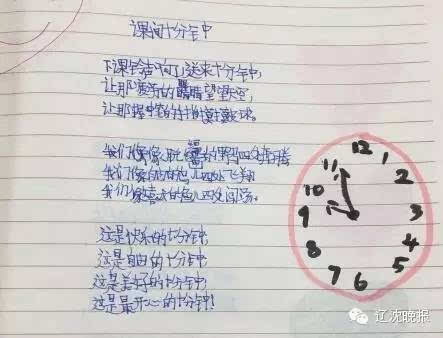 课间十分钟
下课铃声响了送来十分钟,
让那疲劳的眼睛望望天空,
让那握笔的
我们像脱缰的野马四处奔腾
我们像的鸟儿四处飞翔
我们像的鱼儿四处闯荡。
这是快乐的十分钟
这是自由的十分钟
这是美好的十分钟!
这是最开心的十分钟!
12
11
1
10
2
9
3
8
4
7
5
6
辽沈晚报